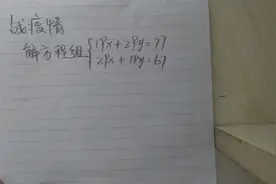 战疫情
解方程组{19x+29y=77
29x+19y=67